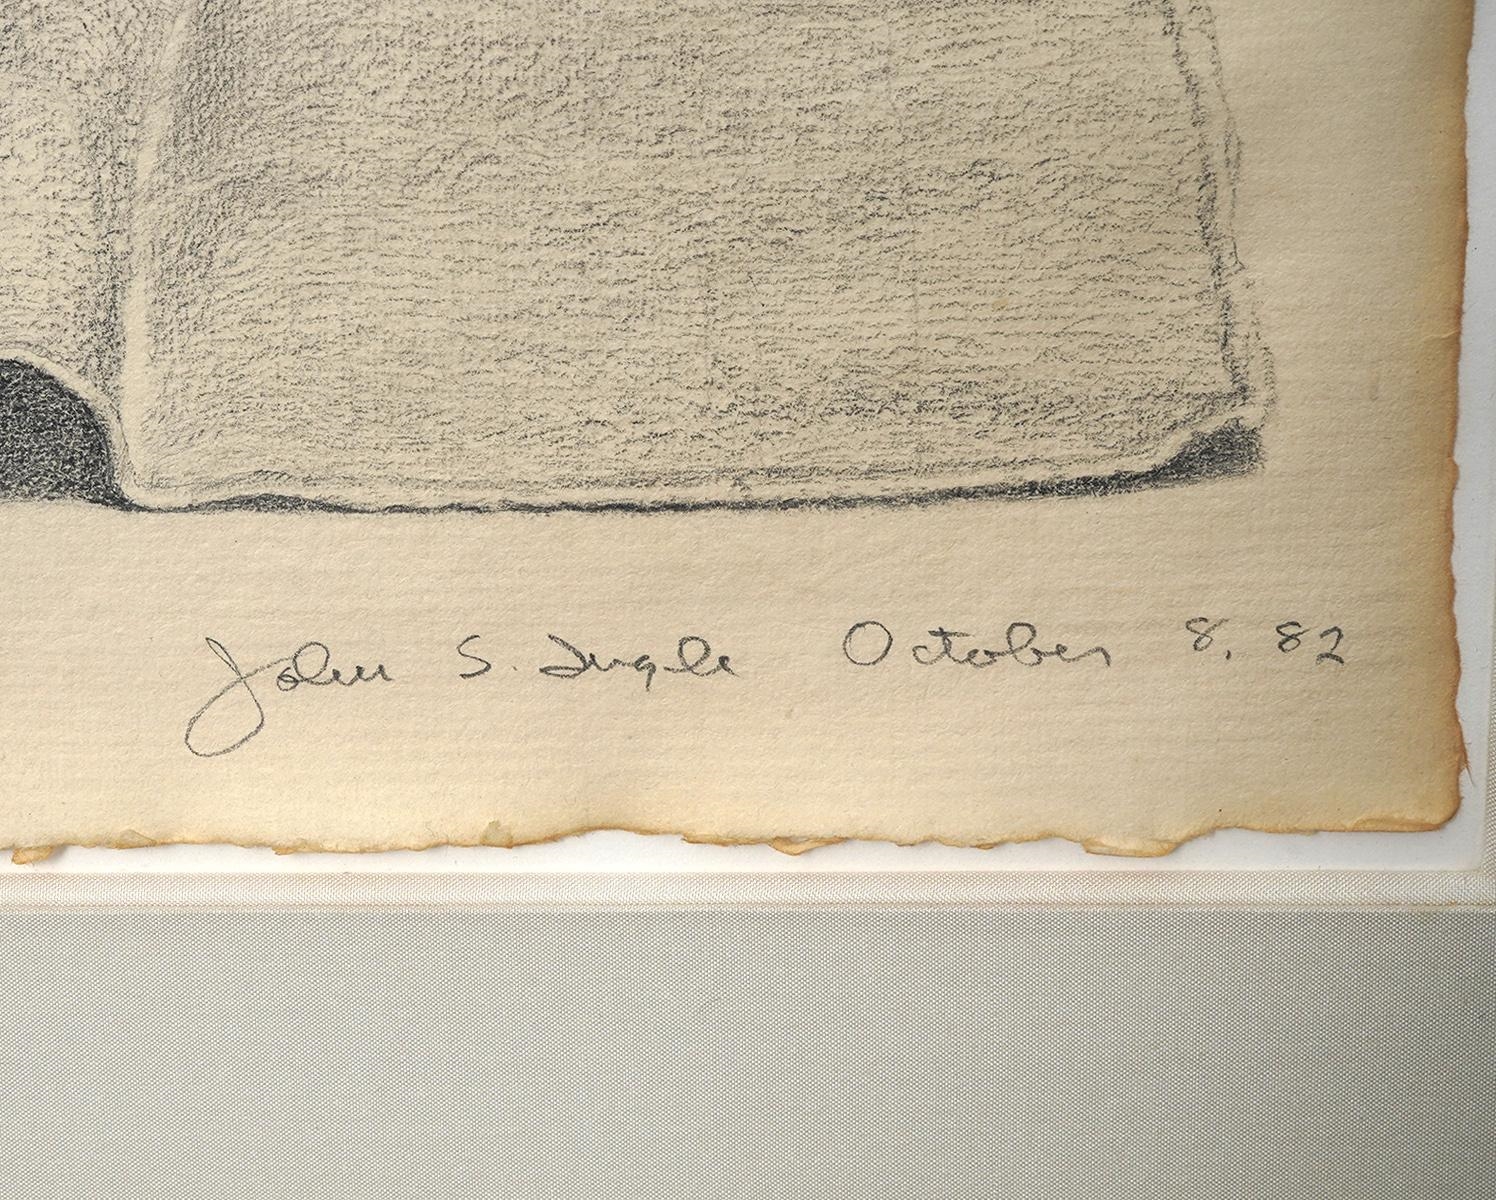 John S. Ingle October 8, 82